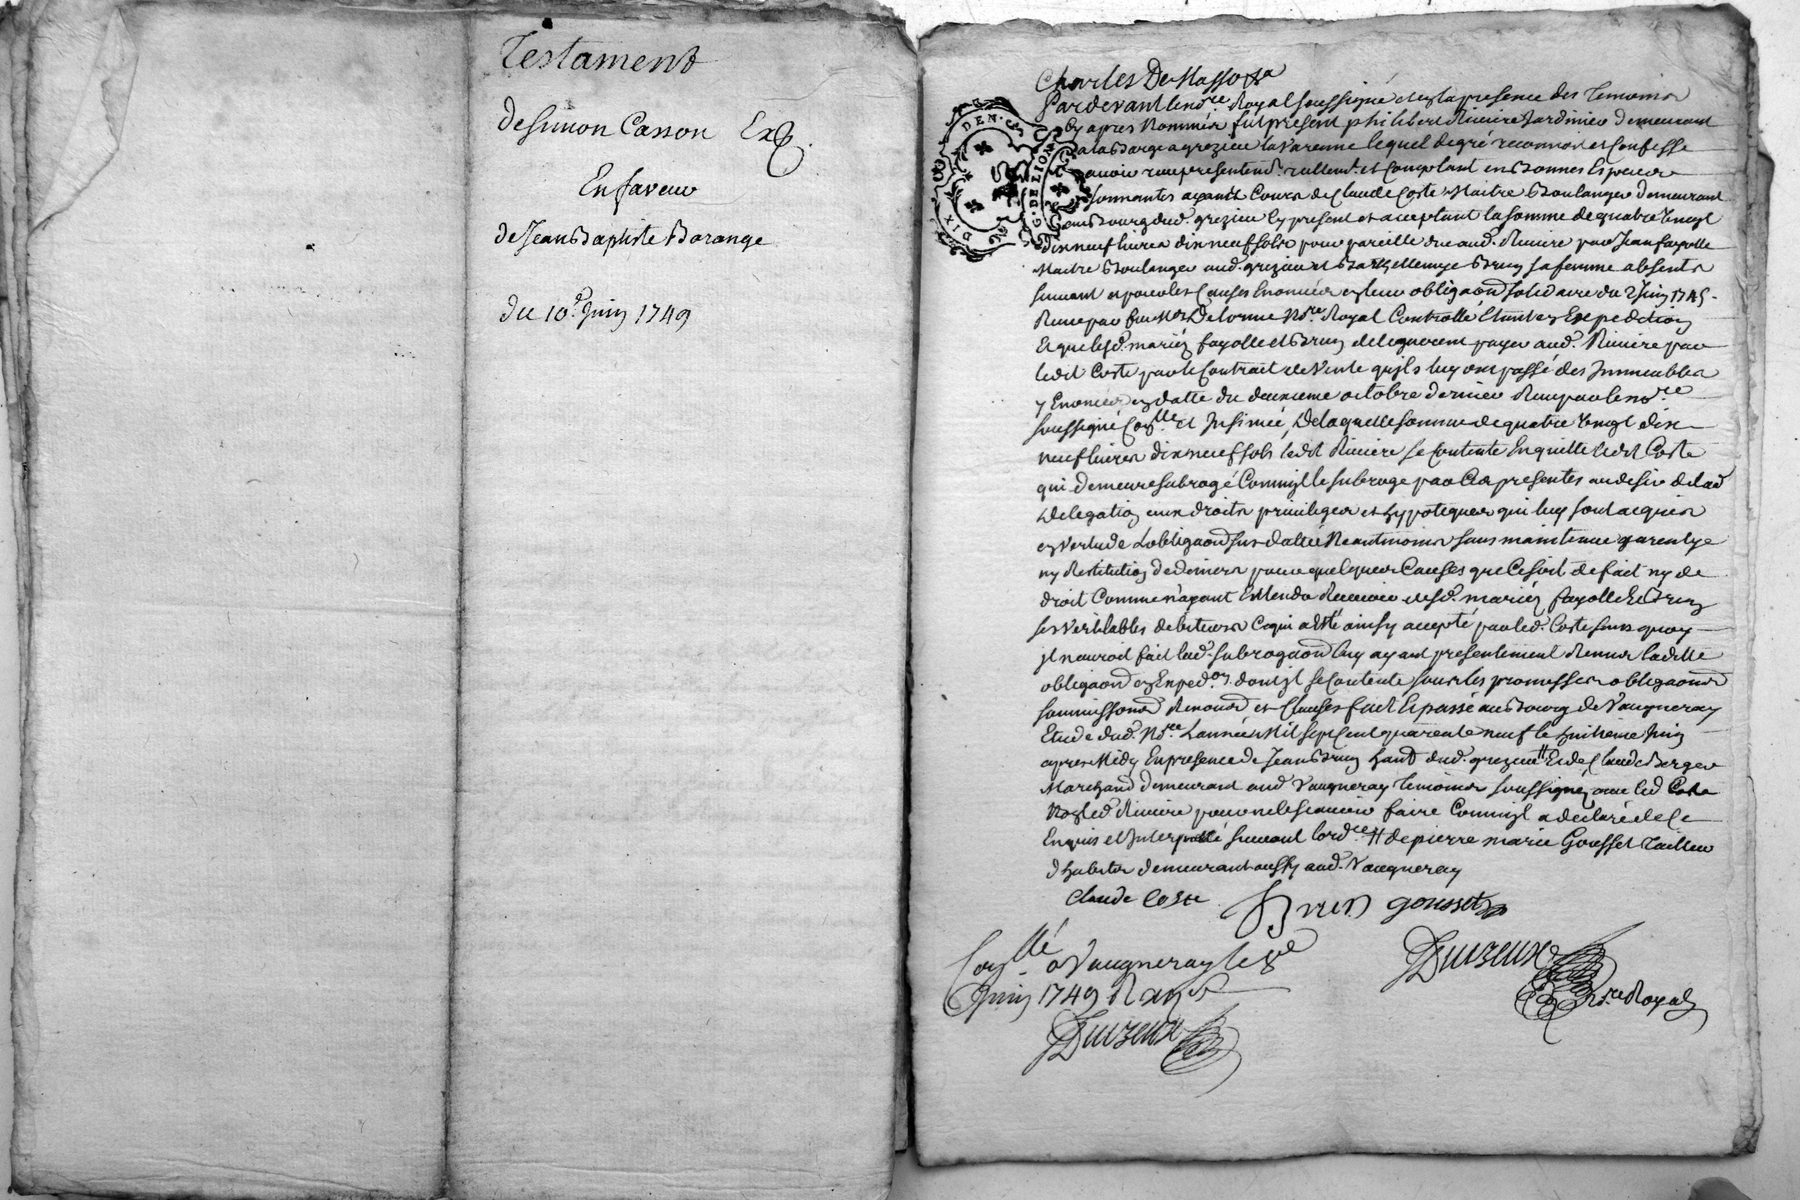 Testament
de Simon Casson Exp.
En faveur
de Jean Baptiste Barange
du 10.e Juin 1749
Charles De Masso
Pardevant le no.re Royal soussigné et en la presence des temoins
Cy apres Nommés fut present philibert Riviere Jardinier demeurant
a la Barge a grezieu la Varenne lequel de gré reconnoit et confesse
avoir reellem.t et Comptant en Bonnes Especes
sonnantes ayants Cours de Claude Coste Maitre Boulanger demeurant
au Bourg dud. grezieu Cy present et acceptant la somme de quatre Vingt
dix neuf livres dix neuf sols pour pareille due aud. Riviere par Jean fayolle
Maitre Boulanger aud. grezieu et Barthellemye Brun sa femme absents
suivant et pour les Causes Enoncées en leur obligaon solidaire du 2 Juin 1745.
Reçue par feu M.e Delorme No.re Royal Controllé Etant en Expedition
Et que lesd. mariés fayolle et Brun deleguerent payer aud. Riviere par
ledit Coste par le Contrait de Vente qu'ils luy ont passé des Immeubles
y Enoncés en datte du deuxieme octobre dernier Reçu par le no.re
soussigné Con.llé et Insinué, De laquelle somme de quatre Vingt dix
neuf livres dix neuf sols ledit Riviere se Contente En quitte ledit Coste
qui demeure subrogé Comm'il le subroge par Ces presentes au desir de lad.
Delegation aux droits privileges et hypoteques qui luy sont acquis
en Vertu de L'obligaon sus dattée Neantmoins sans maintenue garentye
ny Restitution de deniers pour quelques Causes que Ce soit de fait ny de
droit Comme n'ayant Entendu Recevoir desd. mariés fayolle Et Brun
ses Veritables debiteurs Ce qui a Esté ainsy accepté par led. Coste sans quoy
il n'auroit fait lad. subrogaon luy ayant presentement Remis laditte
obligaon en Exped.on dont il se Contente sous les promesses obligaons
soumissons Renons et Clauses fait Et passé au Bourg de Vaugneray
Etude dud. No.re L'année Mil sept Cent quarente neuf le huitieme Juin
apres Midy En presence de Jean Brun hant dud. grezieu # Et de Claude Berger
Marchand demeurant aud. Vaugneray temoins soussignez avec led. Coste
Non led. Riviere pour ne le scavoir faire Comm'il a declaré de Ce
Enquis et Interpellé suivant l'ord.ce # de pierre marie Gousset Tailleur
d'habits demeurant aussy aud. Vaugneray
Claude Coste Brun gousset
Con.llé a Vaugneray le 8.e
Juin 1749 R
Duizeux
Duizeux
No.re Royal
DIX DEN.
G. DE LION